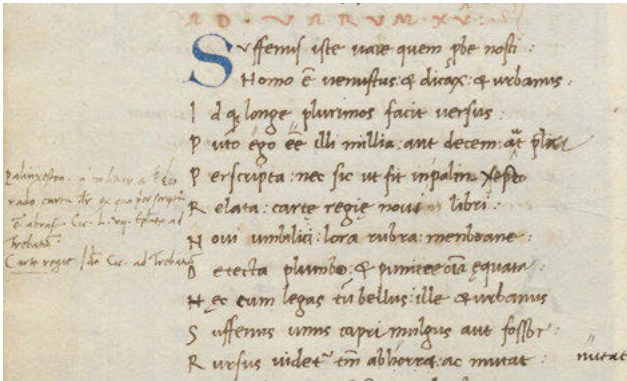 AD. VARUM XV:
Suffenus iste uare quem pbe nosti:
Homo ē uenustus: & dicax: & urbanus.
Idq; longe plurimos facit uersus:
Puto ego eē illi millia: aut decem: aūt
Perscripta: nec sic ut fit in palin
Relata: carte regie noui libri:
Noui umbilici: lora rubra: menbrane
Detecta plumbo: & pumice oīa ęquata:
Hęc cum legas tū bellus: ille & urbanus
Suffenus unus capri mulgus aut fossor:
Rursus uidet~ tm̄ abhorret ac mutat:
mutat
rado carta ex qua
Cic. ad
Trebatiū
Carte regie Cic. ad Trebatiū